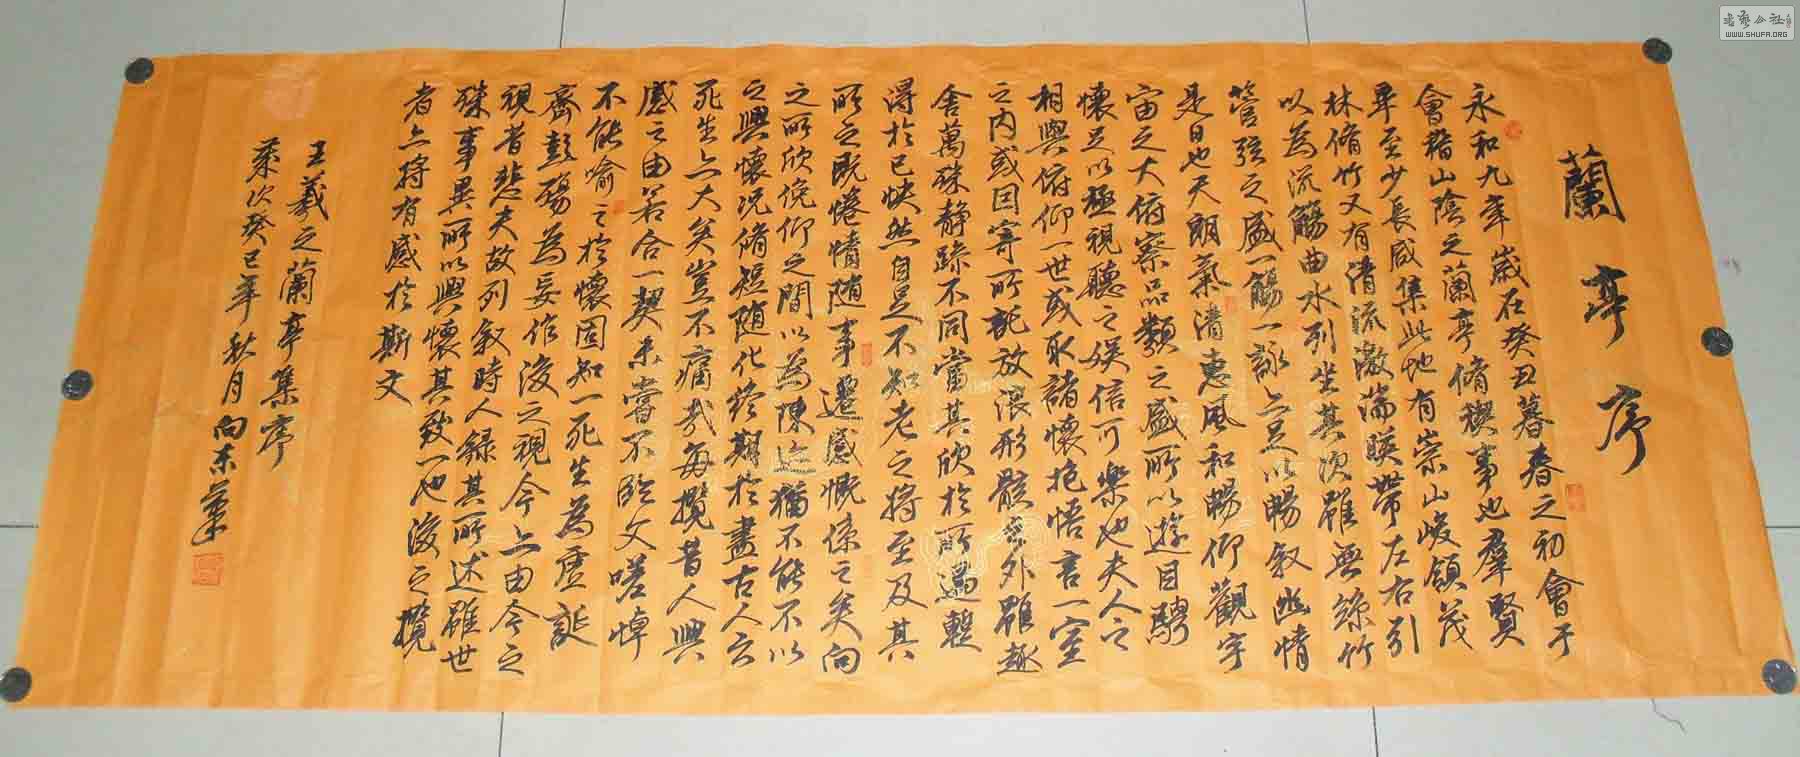 蘭亭序
永和九年歲在癸丑暮春之初會于
會稽山陰之蘭亭脩稧事也羣賢
畢至少長咸集此地有崇山峻領茂
林脩竹又有清流激湍暎帶左右引
以為流觴曲水列坐其次雖無絲竹
管弦之盛一觴一詠亦足以暢敘幽情
是日也天朗氣清惠風和暢仰觀宇
宙之大俯察品類之盛所以遊目騁
懷足以極視聽之娛信可樂也夫人之
相與俯仰一世或取諸懷抱悟言一室
之內或因寄所託放浪形骸之外雖趣
舍萬殊靜躁不同當其欣於所遇蹔
得於己怏然自足不知老之將至及其
所之既惓情隨事遷感慨係之矣向
之所欣俛仰之間以為陳迹猶不能不以
之興懷況脩短隨化終期於盡古人云
死生亦大矣豈不痛哉每攬昔人興
感之由若合一契未嘗不臨文嗟悼
不能喻之於懷固知一死生為虛誕
齊彭殤為妄作後之視今亦由今之
視昔悲夫故列敘時人錄其所述雖世
殊事異所以興懷其致一也後之攬
者亦將有感於斯文
王羲之蘭亭集序
次癸巳年秋月向東
書藝公社
WWW.SHUFA.ORG